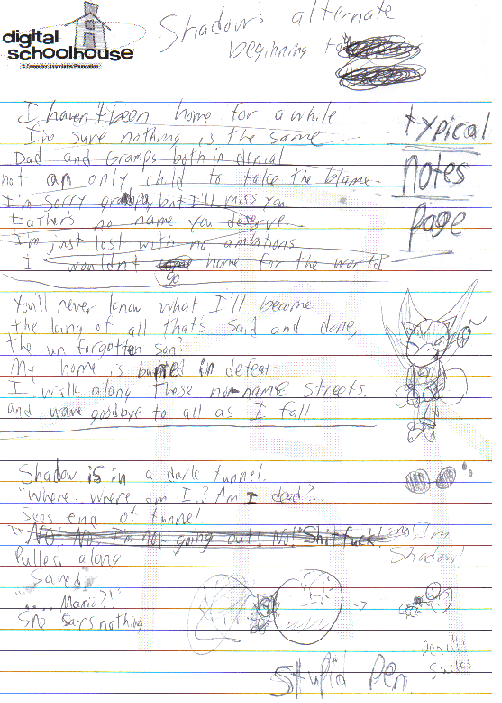 digital
schoolhouse
Shadow's alternate
beginning to
typical
notes
page
I haven't been home for a while
I'm sure nothing is the same
Dad and Gramps both in denial
not an only child to take the blame
I'm sorry grandpa, but I'll miss you
Father's no name you deserve
I'm just lost with no ambitions
I wouldn't go home for the world
You'll never know what I'll become
the king of all that's said and done,
the un forgotten son?
My home is buried in defeat
I walk along these no-name streets
and wave goodbye to all as I fall
Shadow is in a dark tunnel.
"Where.. where am I? Am I dead?"
Sees end of tunnel
No, I'm not going out! No! Shit fuck!
Shadow!
Pulled along
Saved
"..... Maria?!"
She says nothing
Stupid Pen